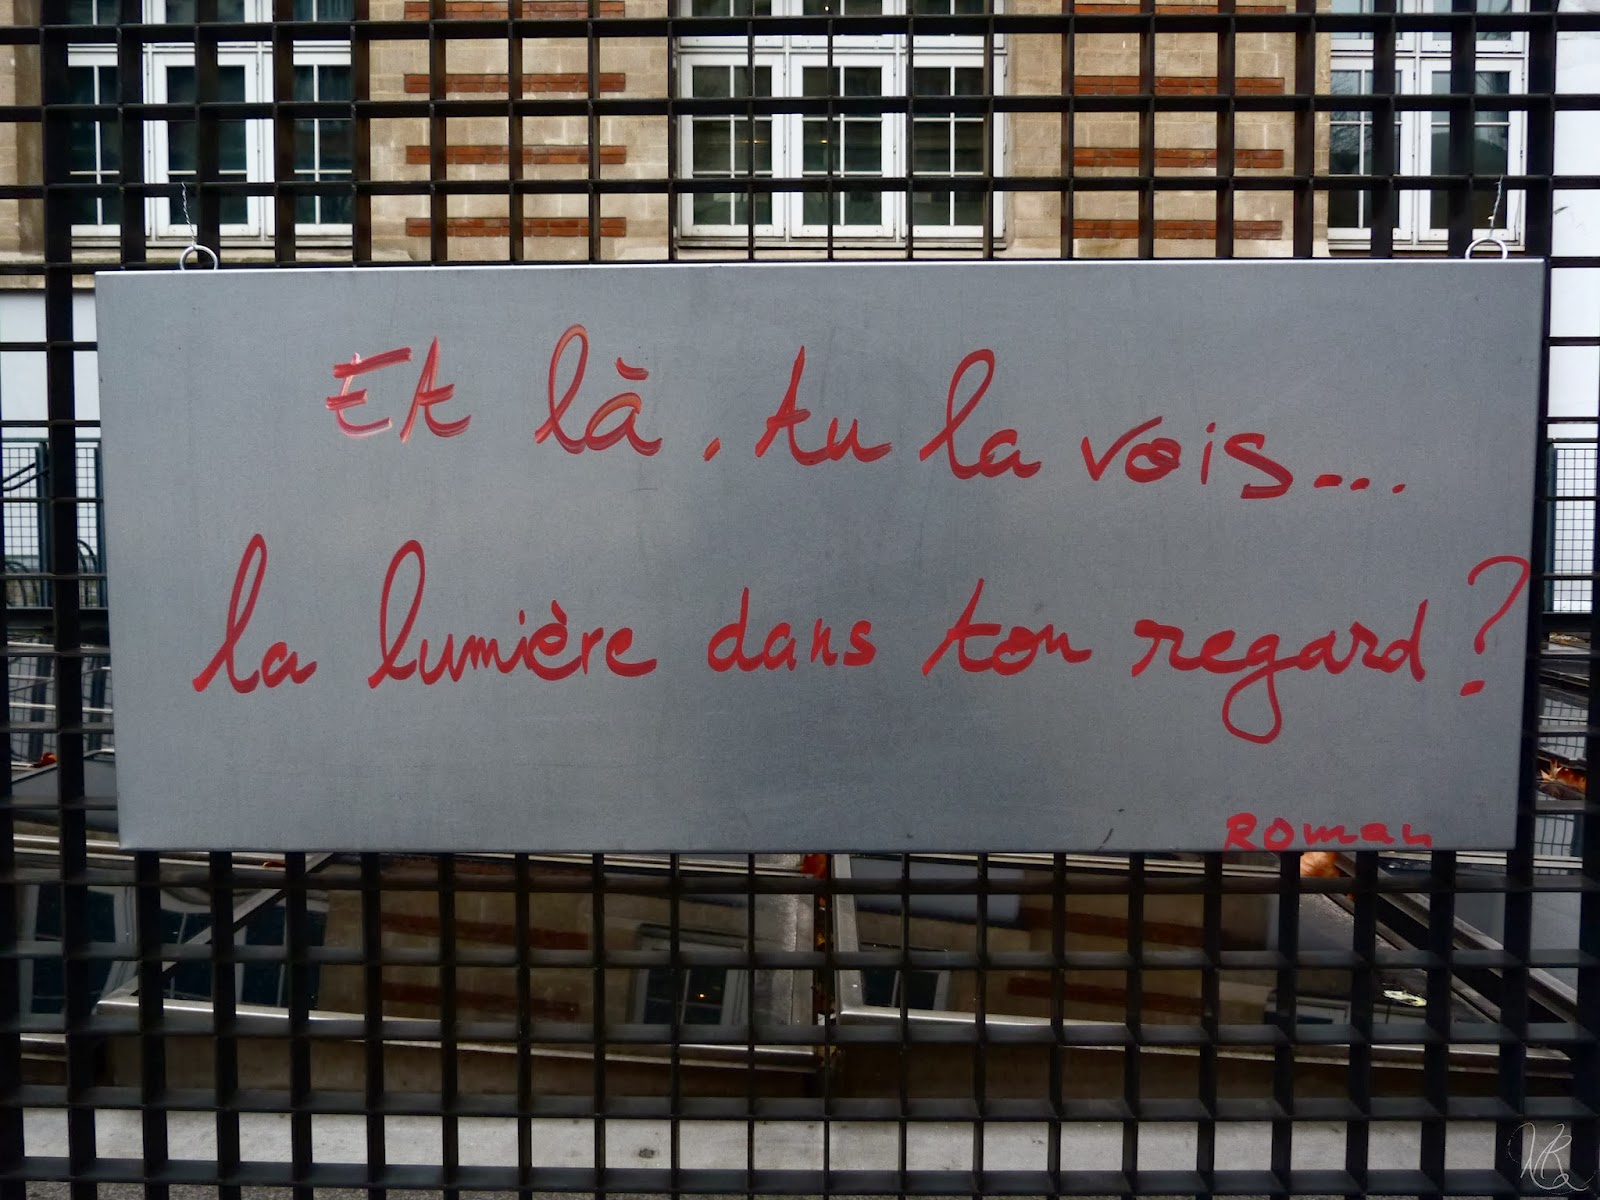 Et là, tu la vois...
la lumière dans ton regard ?
Roman